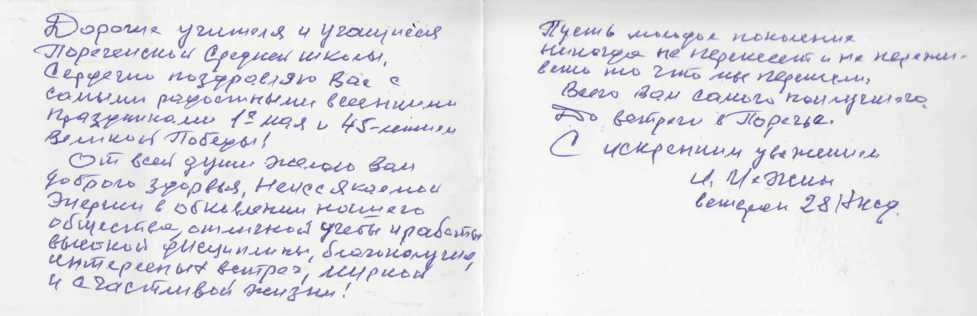 Дорогие учителя и учащиеся
Пореченской Средней школы.
Сердечно поздравляю Вас с
самыми радостными весенними
праздниками 1го мая и 45-летием
Великой Победы!
От всей души желаю Вам
доброго здоровья, неиссякаемой
энергии в обновлении нашего
общества, отличной учебы и работы,
высокой дисциплины, благополучия,
интересных встреч, мирной
и счастливой жизни!
Пусть молодое поколение
никогда не перенесет и не пережи-
вет то что мы пережили.
Всего Вам самого наилучшего.
До встречи в Поречье.
С искренним уважением
И.
ветеран